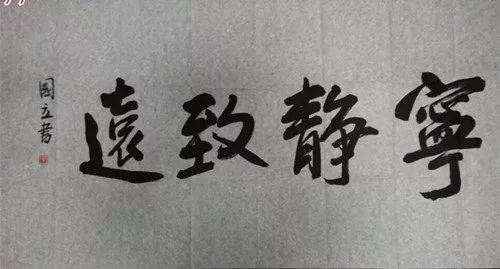 寧靜致遠
国立書